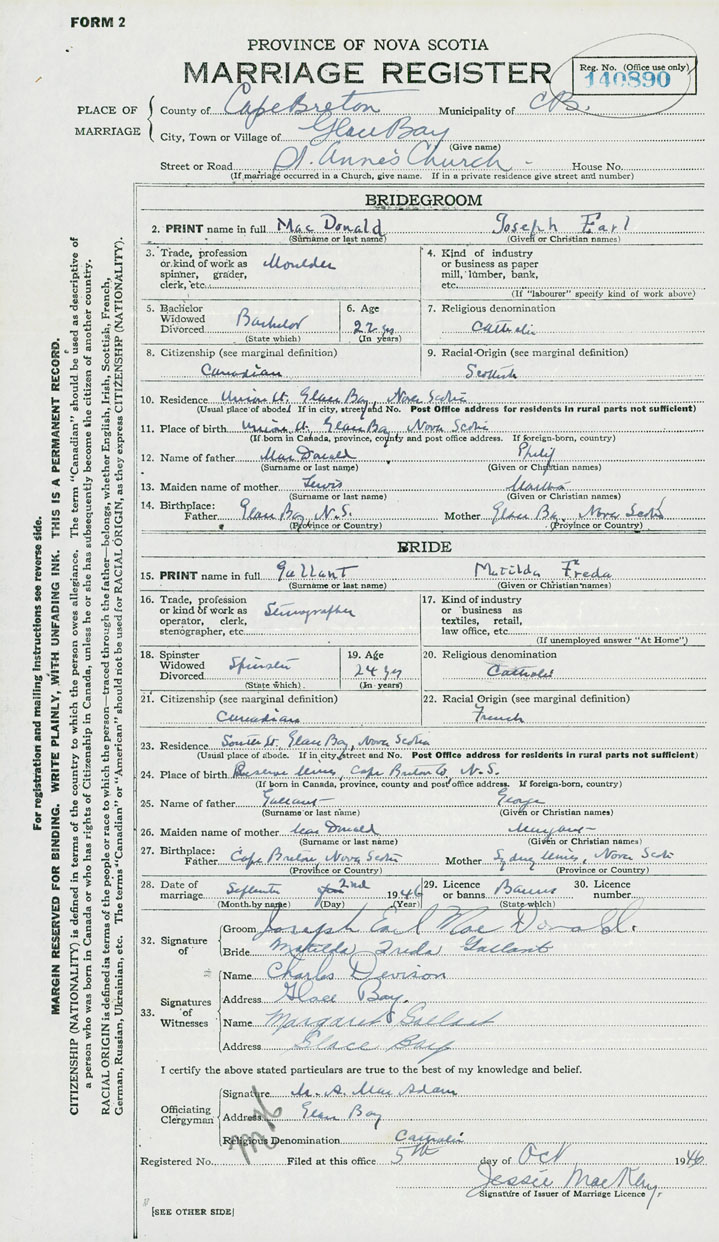 FORM 2
PROVINCE OF NOVA SCOTIA
MARRIAGE REGISTER
Reg. No. (Office use only)
140890
PLACE OF MARRIAGE
County of Cape Breton Municipality of C.B.
City, Town or Village of Glace Bay
(Give name)
Street or Road St. Anne's Church - House No.
(If marriage occurred in a Church, give name. If in a private residence give street and number)
BRIDEGROOM
2. PRINT name in full MacDonald Joseph Earl
(Surname or last name) (Given or Christian names)
3. Trade, profession or kind of work as spinner, grader, clerk, etc. Moulder
4. Kind of industry or business as paper mill, lumber, bank, etc.
(If "labourer" specify kind of work above)
5. Bachelor Widowed Divorced Bachelor
(State which)
6. Age 22 yrs
(In years)
7. Religious denomination Catholic
8. Citizenship (see marginal definition) Canadian
9. Racial Origin (see marginal definition) Scottish
10. Residence Union St. Glace Bay, Nova Scotia
(Usual place of abode. If in city, street and No. Post Office address for residents in rural parts not sufficient)
11. Place of birth Union St. Glace Bay, Nova Scotia
(If born in Canada, province, county and post office address. If foreign-born, country)
12. Name of father MacDonald Philip
(Surname or last name) (Given or Christian names)
13. Maiden name of mother Lewis Martha
(Surname or last name) (Given or Christian names)
14. Birthplace: Father Glace Bay, N.S. Mother Glace Bay, Nova Scotia
(Province or Country) (Province or Country)
BRIDE
15. PRINT name in full Gallant Matilda Freda
(Surname or last name) (Given or Christian names)
16. Trade, profession or kind of work as operator, clerk, stenographer, etc. Stenographer
17. Kind of industry or business as textiles, retail, law office, etc.
(If unemployed answer "At Home")
18. Spinster Widowed Divorced Spinster
(State which)
19. Age 24 yrs
(In years)
20. Religious denomination Catholic
21. Citizenship (see marginal definition) Canadian
22. Racial Origin (see marginal definition) French
23. Residence South St. Glace Bay, Nova Scotia
(Usual place of abode. If in city, street and No. Post Office address for residents in rural parts not sufficient)
24. Place of birth Reserve Mines, Cape Breton Co, N.S.
(If born in Canada, province, county and post office address. If foreign-born, country)
25. Name of father Gallant George
(Surname or last name) (Given or Christian names)
26. Maiden name of mother MacDonald Margaret
(Surname or last name) (Given or Christian names)
27. Birthplace: Father Cape Breton, Nova Scotia Mother Sydney Mines, Nova Scotia
(Province or Country) (Province or Country)
28. Date of marriage September 2nd 1946
(Month by name) (Day) (Year)
29. Licence or banns Banns
(State which)
30. Licence number
32. Signature of
Groom Joseph Earl MacDonald.
Bride Matilda Freda Gallant
33. Signatures of Witnesses
Name Charles Devison
Address Glace Bay.
Name Margaret Gallant
Address Glace Bay
I certify the above stated particulars are true to the best of my knowledge and belief.
Officiating Clergyman
Signature M. A. MacAdam
Address Glace Bay
Religious Denomination Catholic
Registered No. Filed at this office 5th day of Oct 1946
Jessie MacKay
Signature of Issuer of Marriage Licence
[SEE OTHER SIDE]
For registration and mailing instructions see reverse side.
MARGIN RESERVED FOR BINDING. WRITE PLAINLY, WITH UNFADING INK. THIS IS A PERMANENT RECORD.
CITIZENSHIP (NATIONALITY) is defined in terms of the country to which the person owes allegiance. The term "Canadian" should be used as descriptive of
a person who was born in Canada or who has rights of Citizenship in Canada, unless he or she has subsequently become the citizen of another country.
RACIAL ORIGIN is defined in terms of the people or race to which the person—traced through the father—belongs, whether English, Irish, Scottish, French,
German, Russian, Ukrainian, etc. The terms "Canadian" or "American" should not be used for RACIAL ORIGIN, as they express CITIZENSHIP (NATIONALITY).